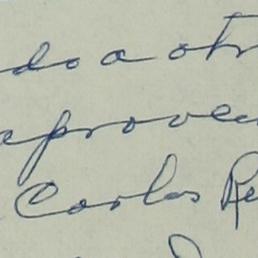 do a otr
aprovec
Carlos Re